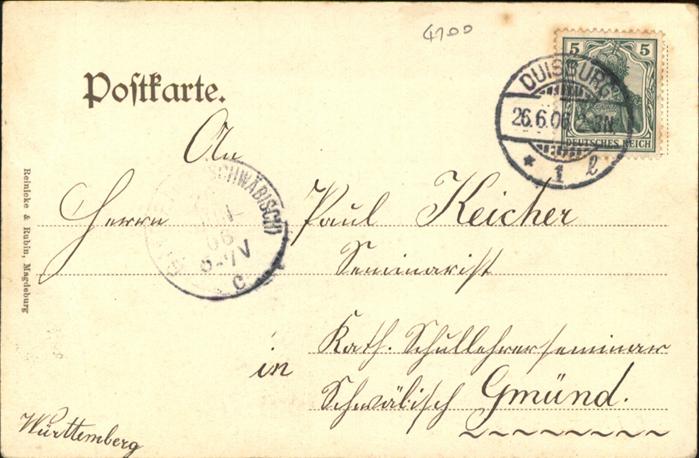 4700
5 5
DEUTSCHES REICH
DUISBURG
26.6.06
* 1 l
Postkarte.
An
(SCHWÄBISCH)
06
6-7V
c
Herrn Paul Keicher
Seminarist
Kath. Schullehrerseminar
in Schwäbisch Gmünd.
Württemberg
Reinicke & Rubin, Magdeburg